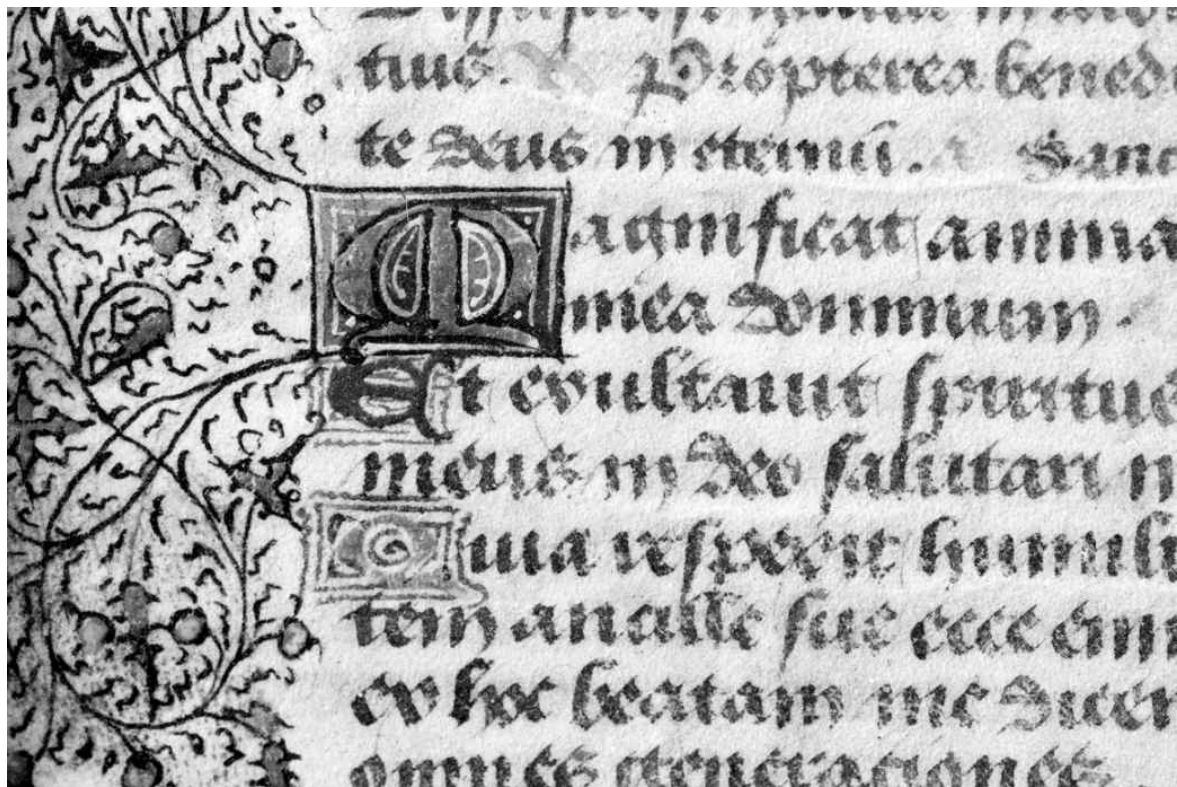 tuus. Propterea bened
te deus in eternū. Sanc
Magnificat anima
mea dominum.
Et exultauit spiritus
meus in deo salutari m
Quia respexit humili
tem ancille sue ecce enim
ex hoc beatam me dicen
omnes generaciones